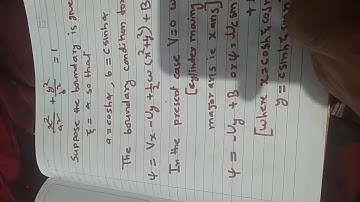 x²/a² + y²/b² = 1
Suppose the boundary is give
ξ = α so that
a = c coshα, b = c sinhα
The boundary condition to
ψ = Vx - Uy + ½ω(x²+y²) + B
In the present case V=0 ω
[cylinder moving
major axis ie x axis]
ψ = -Uy + B or ψ = -Uc sin
+
[where x = c coshξ cosη
y = c sinhξ sin